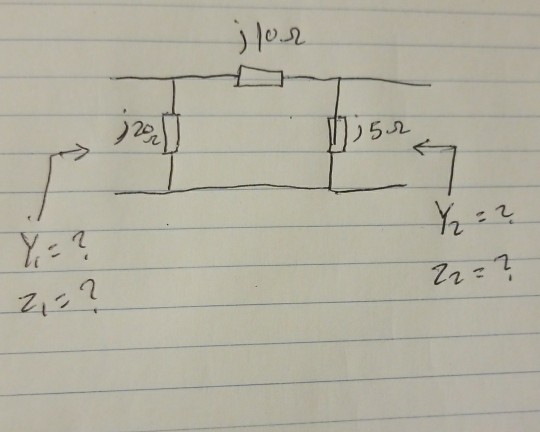 j10Ω
j20Ω
j5Ω
Y₁ = ?
Z₁ = ?
Y₂ = ?
Z₂ = ?